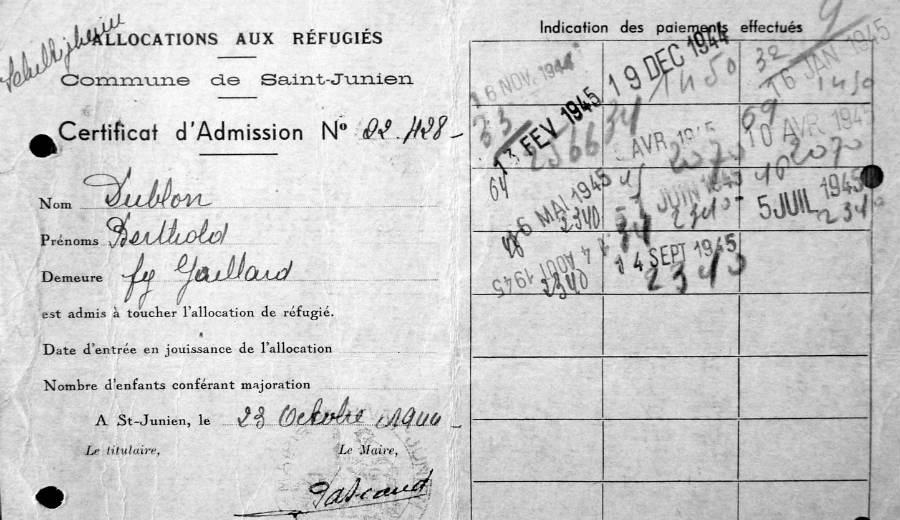 ALLOCATIONS AUX RÉFUGIÉS
Commune de Saint-Junien
Certificat d'Admission Nº 22.428
Nom Dublon
Prénoms Berthold
Demeure fg Gaillard
est admis à toucher l'allocation de réfugié.
Date d'entrée en jouissance de l'allocation
Nombre d'enfants conférant majoration
A St-Junien, le 23 Octobre 1944
Le titulaire, Le Maire,
Indication des paiements effectués
16 NOV. 1944 19 DEC 1944 16 JAN 1945
33 1450 32 1450
13 FEV 1945 AVR 1945 10 AVR 1945
2566 34 2070 69 2070
6 MAI 1945 JUIN 1945 5 JUIL 1945
64 2340 45 2340 46 2340
4 AOUT 1945 14 SEPT 1945
48 2340 34 2340